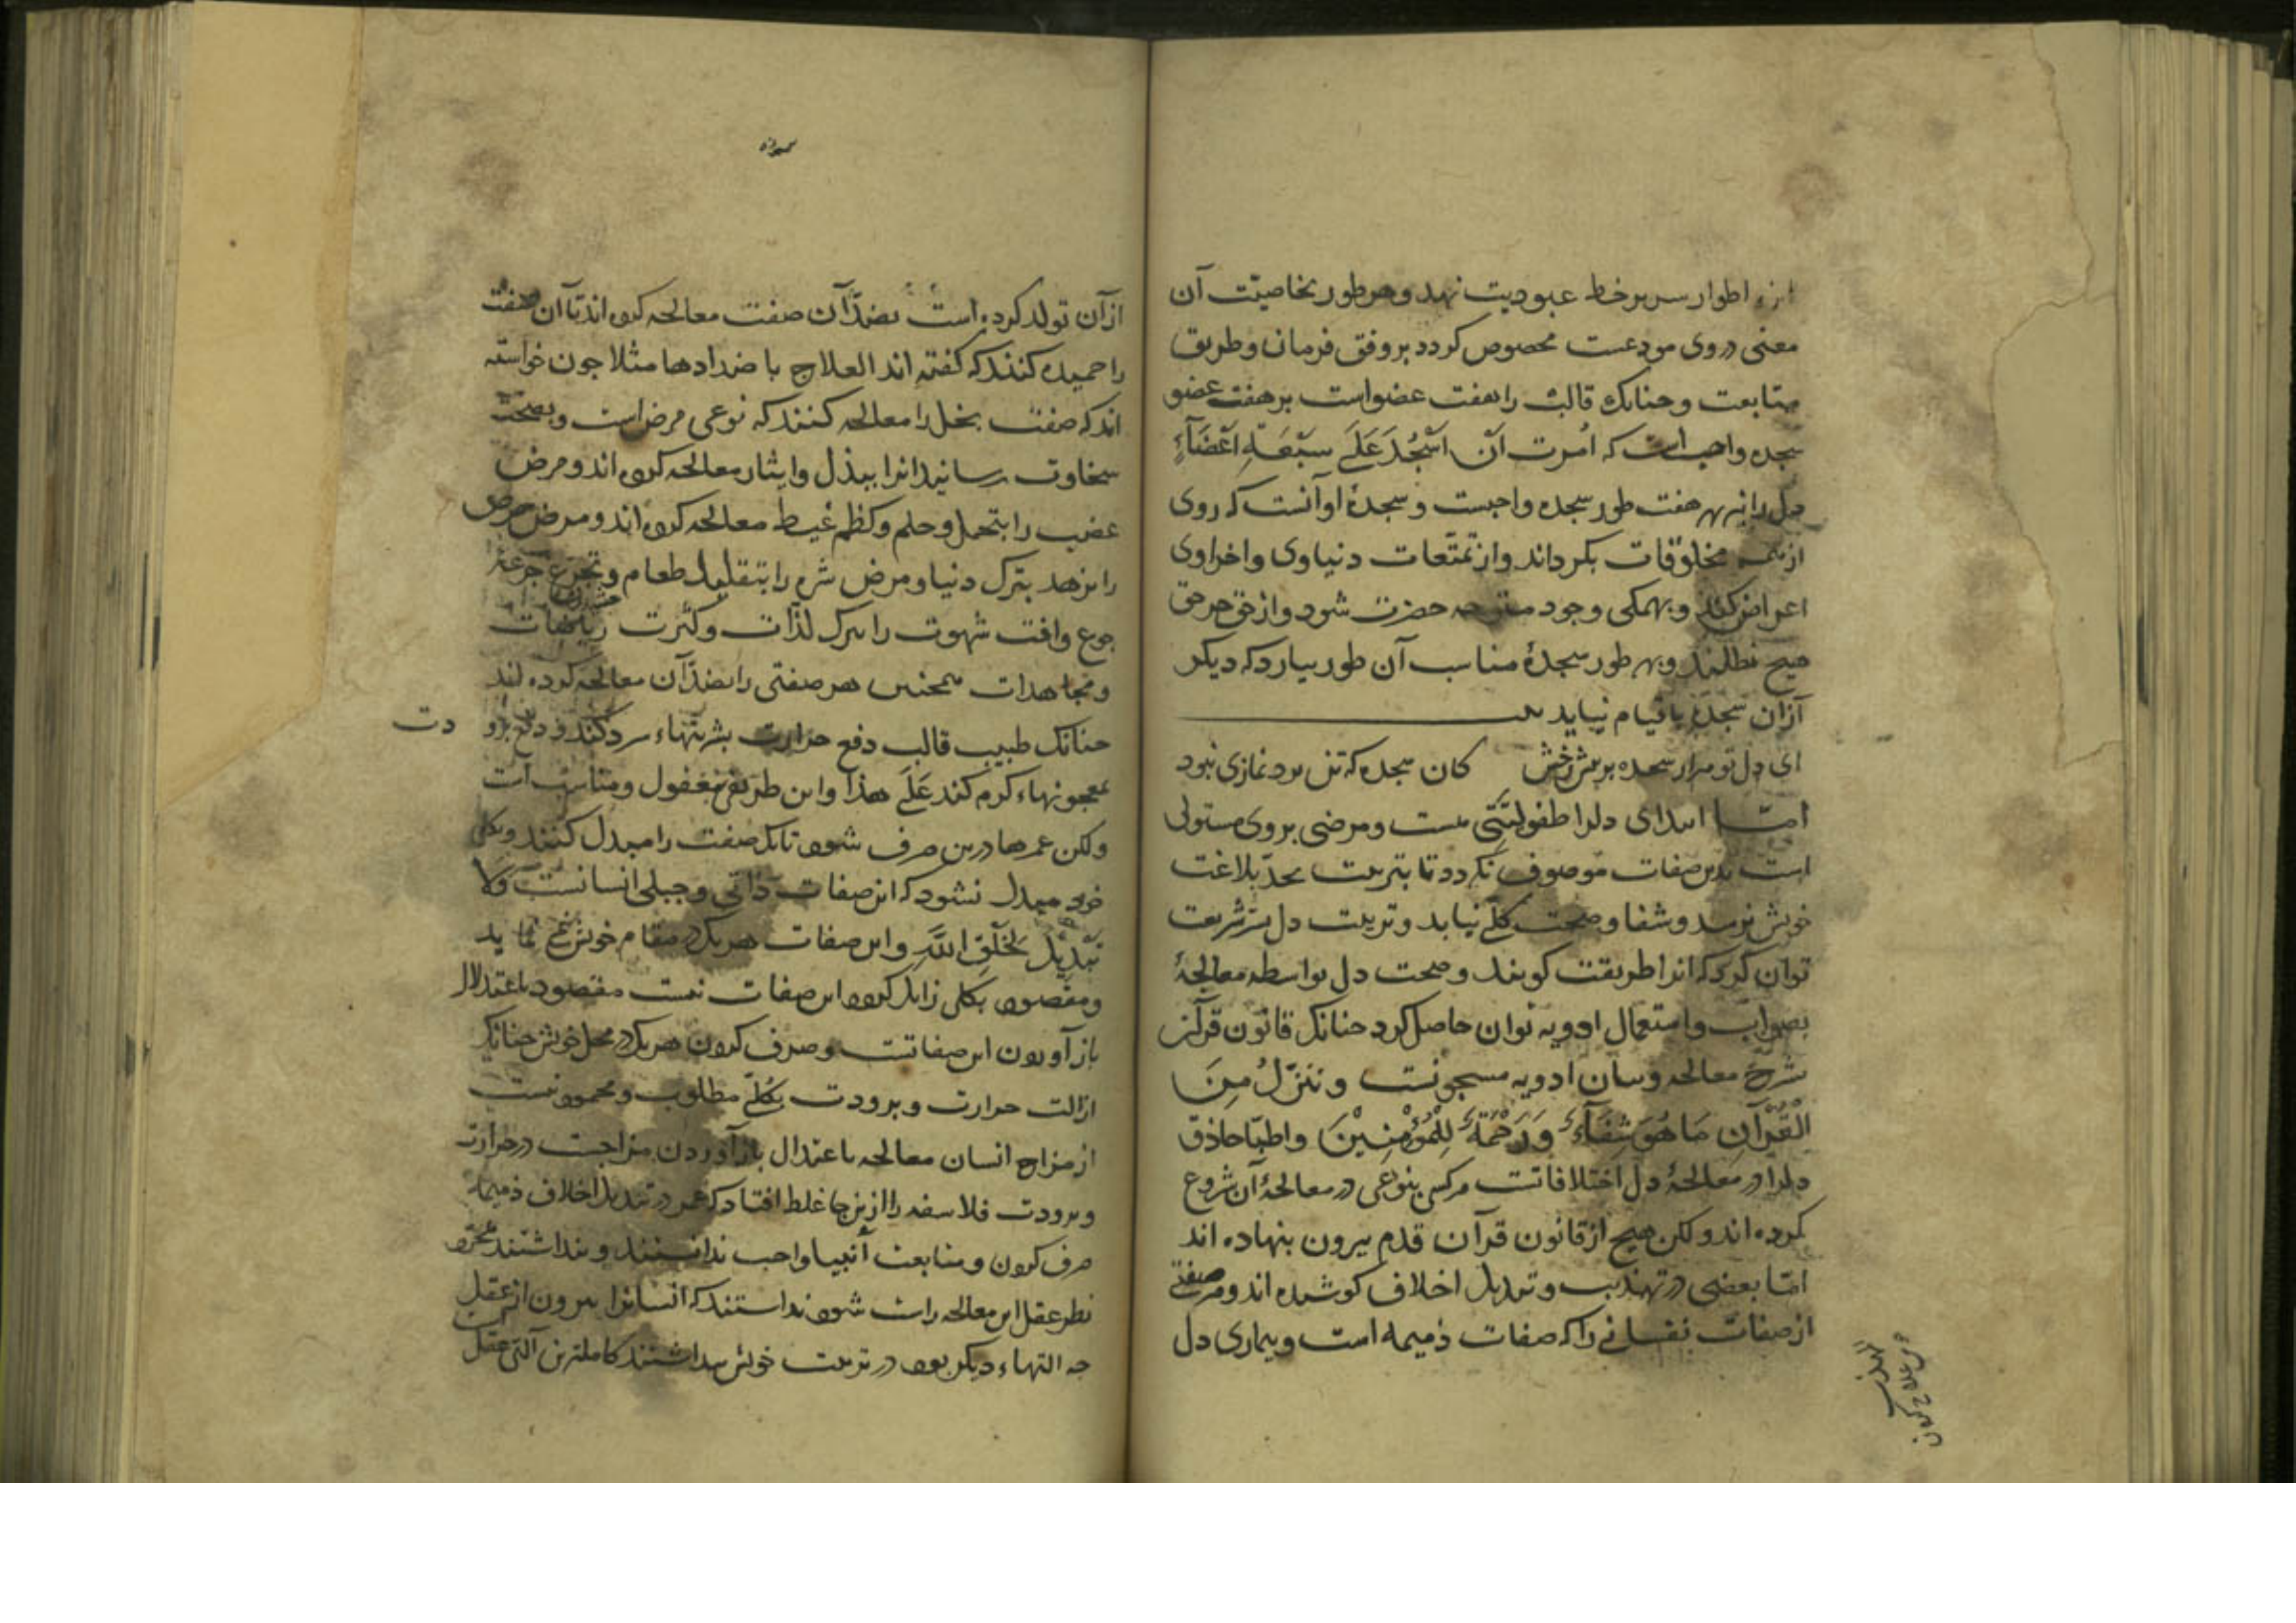 اطوار سر بر خط عبودیت نهد و هر طور بخاصیّت آن
معنی در وی مودعست مخصوص کردد بر وفق فرمان و طریق
متابعت و جنانک قالب را هفت عضو است بر هفت عضو
سجده واجب است که اُمرت اَن اَسْجُدَ عَلَی سَبْعَةِ اَعْضَآءٍ
دل را نیز بهر هفت طور سجده واجبست و سجدهٔ او آنست که روی
از همه مخلوقات بکرداند و از تمتّعات دنیاوی و اخراوی
اعراض کند و بهمکی وجود متوجه حضرت شود و از حق جز حق
هیج نطلبد و بهر طور سجدهٔ مناسب آن طور بیارد که دیکر
از آن سجده با قیام نیاید
ای دل تو مرار سجده بر بیش رخش کان سجده که تن برد نمازی نبود
امّا ابتدای دلرا طفولیّتی هست و مرضی بر وی مستولی
است بدین صفات موصوف نکردد تا بتربیت بحدّ بلاغت
خویش نرسد و شفا و صحت کلّی نیابد و تربیت دل بسرّ شریعت
توان کرد که انرا طریقت کویند و صحت دل بواسطه معالجهٔ
بصواب و استعمال ادویه توان حاصل کرد جنانک قانون قرآن
شرح معالجه و بیان ادویه مسجونست و ننزّلُ مِنَ
الْقُرْآنِ مَا هُوَ شِفَآءٌ وَ رَحْمَةٌ لِلْمُؤْمِنِیْنَ و اطبّا حاذق
دلرا در معالجهٔ دل اختلافاتست هر کس بنوعی در معالجهٔ آن شروع
کرده اند و لکن هیج از قانون قرآن قدم بیرون بنهاده اند
امّا بعضی در تهذیب و تبدیل اخلاق کوشیده اند و هر صفتی
از صفات نفسانی را که صفات ذمیمه است و بیماری دل
از آن تولد کرده است بضدّ آن صفت معالجه کرده اند تا آن صفت
را حمیده کنند که کفته اند العلاج باضدادها مثلا جون خواسته
اند که صفت بخل را معالجه کنند که نوعی مرض است و بصحت
سخاوت رسانید انرا ببذل و ایثار معالجه کرده اند و مرض
غضب را بتحمل و حلم و کظم غیظ معالجه کرده اند و مرض حرص
را بزهد بترک دنیا و مرض شره را بتقلیل طعام و تجرّع جرعهٔ
جوع و افت شهوت را بترک لذّات و کثرت ریاضات
و مجاهدات همجنین هر صفتی را بضدّ آن معالجه کرده اند
جنانک طبیب قالب دفع حرارت بشربتهاء سرد کند و دفع برو دت
بمعجونهاء کرم کند عَلَی هذا و این طریقی معقول و مناسب است
و لکن عمرها درین صرف شود تا یک صفت را مبدل کنند و بکلی
خود مبدل نشود که این صفات ذاتی و جبلی انسانست وَ لا
تَبْدِیْلَ لِخَلْقِ اللّهِ و این صفات هر یک در مقام خویش می باید
و مقصود بکلی زایل کردن این صفات نیست مقصود باعتدال
باز آوردن این صفاتست و صرف کردن هر یک در محل خویش جنانک
ازالت حرارت و برودت بکلّی مطلوب و محمود نیست
از مزاج انسان معالجه باعتدال باز آوردن مزاجست در حرارت
و برودت فلاسفه را ازینجا غلط افتاد که عمر در تبدیل اخلاق ذمیمه
صرف کردن و متابعت انبیا واجب ندانستند و بنداشتند بمجرّد
نظر عقل این معالجه راست شود ندانستند که انسانرا بیرون از عقل
جه التهاء دیکر بود در تربیت خویش بنداشتند کاملترین آلتی عقل